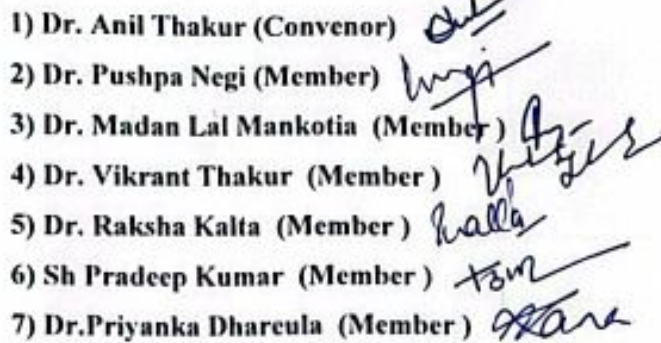 1) Dr. Anil Thakur (Convenor)
2) Dr. Pushpa Negi (Member)
3) Dr. Madan Lal Mankotia (Member )
4) Dr. Vikrant Thakur (Member )
5) Dr. Raksha Kalta (Member )
6) Sh Pradeep Kumar (Member )
7) Dr.Priyanka Dhareula (Member )